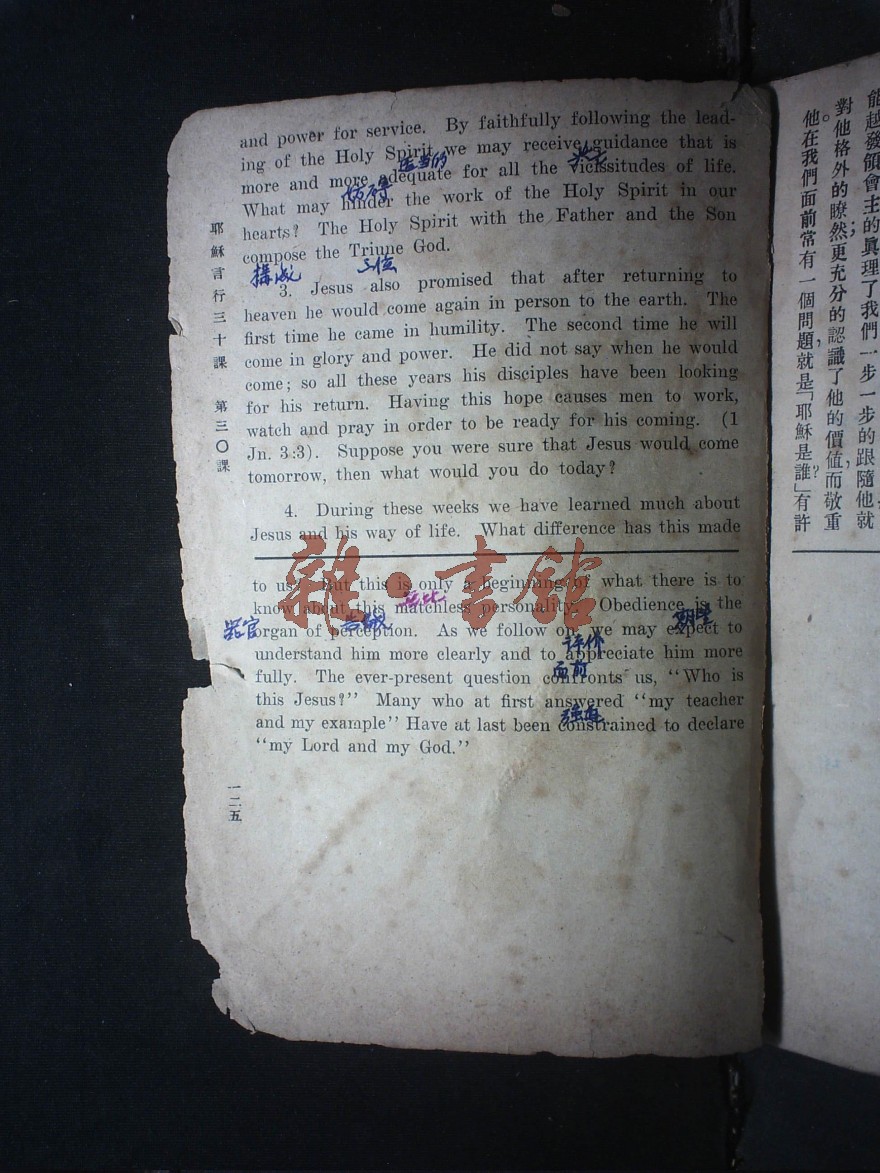 and power for service. By faithfully following the lead-
ing of the Holy Spirit we may receive guidance that is
適當的
more and more adequate for all the vicissitudes of life.
妨碍
What may hinder the work of the Holy Spirit in our
hearts? The Holy Spirit with the Father and the Son
compose the Triune God.
構成 三位
3. Jesus also promised that after returning to
heaven he would come again in person to the earth. The
first time he came in humility. The second time he will
come in glory and power. He did not say when he would
come; so all these years his disciples have been looking
for his return. Having this hope causes men to work,
watch and pray in order to be ready for his coming. (1
Jn. 3:3). Suppose you were sure that Jesus would come
tomorrow, then what would you do today?
4. During these weeks we have learned much about
Jesus and his way of life. What difference has this made
to us? But this is only a beginning of what there is to
無比
know about this matchless personality. Obedience is the
器官 期望
organ of perception. As we follow on, we may expect to
評价
understand him more clearly and to appreciate him more
面前
fully. The ever-present question confronts us, "Who is
this Jesus?" Many who at first answered "my teacher
强迫
and my example" Have at last been constrained to declare
"my Lord and my God."
耶穌言行三十課 第三〇課
一二五
雜·書館
能越發領會主的眞理了我們一步一步的跟隨他就
對他格外的瞭然;更充分的認識了他的價值,而敬重
他。在我們面前常有一個問題,就是「耶穌是誰?」有許